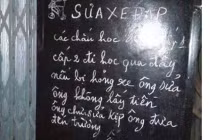 SỬA XE ĐẠP
các cháu học cấp 1
cấp 2 đi học qua đây
nếu bị hỏng xe ông sửa
ông không lấy tiền
ông chú sửa kịp ông đưa
đến trường